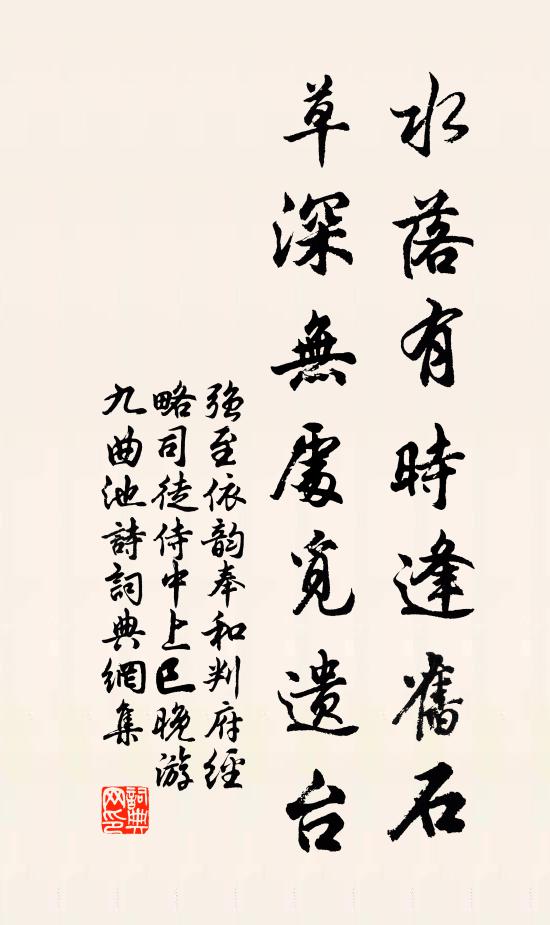 水落有時逢舊石
草深無處覓遺台
強至依韵奉和判府經
略司徒侍中上巳晚游
九曲池詩詞典網集
詞典
网印